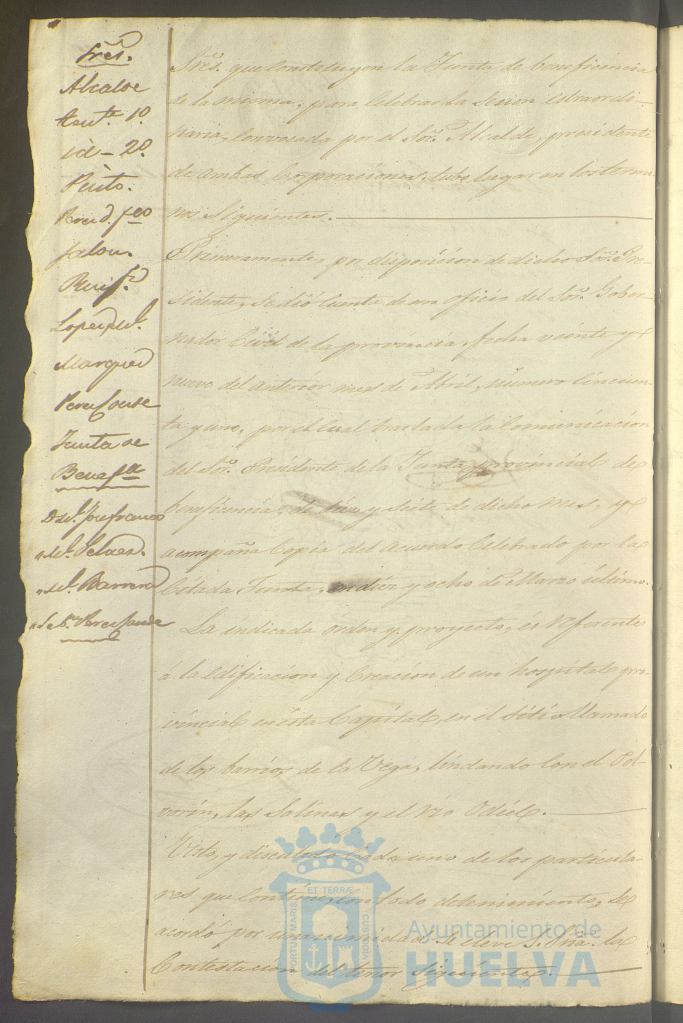 Sres.
Alcalde
Tente. 1º
id - 2º
Pinto.
Jalon.
Ruiz
Lopez
Marquez
Perez Conde
Junta de
Benefa.
Sres. que constituyen la Junta de beneficencia
de la misma, para celebrar la sesion estraordi-
naria, convocada por el Sor. Alcalde, presidente
de ambas Corporaciones, tubo lugar en los termi-
nos siguientes.
Primeramente, por disposicion de dicho Sor. Pre-
sidente, se dió cuenta de un oficio del Sor. Gober-
nador Civil de la provincia, fecha veinte y
nueve del anterior mes de Abril, número cincuen-
ta y uno, por el cual traslada la comunicacion
del Sor. Presidente de la Junta provincial de
beneficencia, de diez y siete de dicho mes, y
acompaña copia del acuerdo celebrado por la
citada Junta, en diez y ocho de Marzo último.
La indicada órden y proyecto, es referente
á la edificacion y creacion de un hospital pro-
vincial en esta Capital, en el sitio llamado
de los barrios de la Vega, lindando con el Pol-
vorin, las Salinas y el rio Odiel.
Visto, y discutido cada uno de los particula-
res que contiene, con todo detenimiento, se
acordó por unanimidad se eleve á S. Sria. la
contestacion del tenor siguiente.
PORTUM MARIS ET TERRAE CUSTODIA
Ayuntamiento de
HUELVA